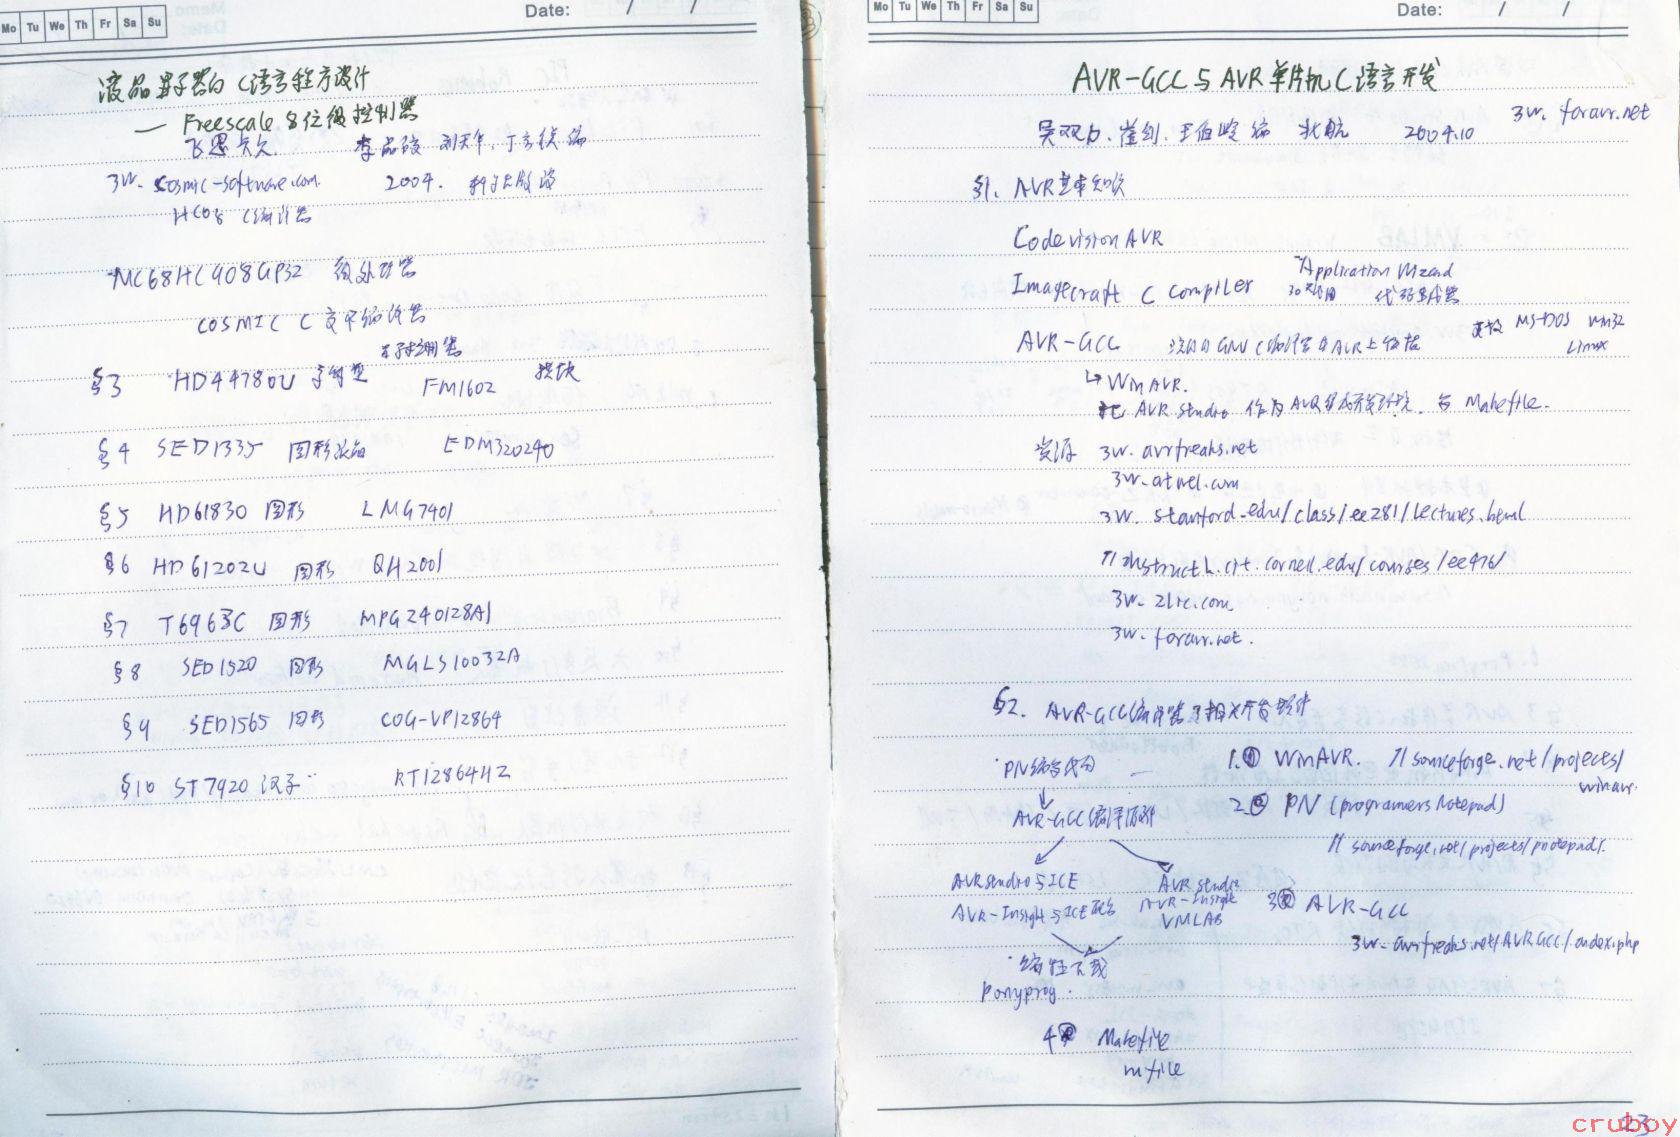 Mo Tu We Th Fr Sa Su
Date: / /
液晶显示器的C语言程序设计
— Freescale 8位微控制器
飞思卡尔 李品
3W. cosmic-software.com. 2004. 科学出版
HC08 C编译器
MC68HC908GP32 微处理器
COSMIC C 交叉编译器
§3 HD44780U 字符型 FM1602 模块
§4 SED1335 图形液晶 EDM320240
§5 HD61830 图形 LMG7401
§6 HD61202U 图形 QH2001
§7 T6963C 图形 MPG240128A1
§8 SED1520 图形 MGLS10032A
§9 SED1565 图形 COG-VP12864
§10 ST7920 汉字 RT12864HZ
Mo Tu We Th Fr Sa Su
Date: / /
AVR-GCC与AVR单片机C语言开发
3W. foravr.net
吴双力、崔剑、王伯岭 编 北航 2004.10
§1. AVR基本知识
Codevision AVR
Imagecraft C Compiler Application Wizard
30天试用 代码生成器
AVR-GCC GNU C编译器在AVR上移植 支持 MS-DOS Win32
Linux
↳ WinAVR.
把 AVR studio 作为AVR集成开发环境. 写 Makefile.
资源 3W. avrfreaks.net
3W. atmel.com
3W. stanford.edu/class/ee281/lectures.html
//instruct1.cit.cornell.edu/courses/ee476/
3W. zlrc.com.
3W. foravr.net.
§2. AVR-GCC编译器及相关开发软件
PN编写代码
AVR-GCC编译源码
AVRstudio与ICE
AVR-Insight与ICE配合
AVR studio
AVR-Insight
VMLAB
编程下载
Ponyprog.
1. WinAVR. //sourceforge.net/projects/
winavr.
2 PN (programers Notepad)
//sourceforge.net/projects/pnotepad/.
3 AVR-GCC
3W. avrfreaks.net/AVRGCC/index.php
4 Makefile
mfile
23
cruboy